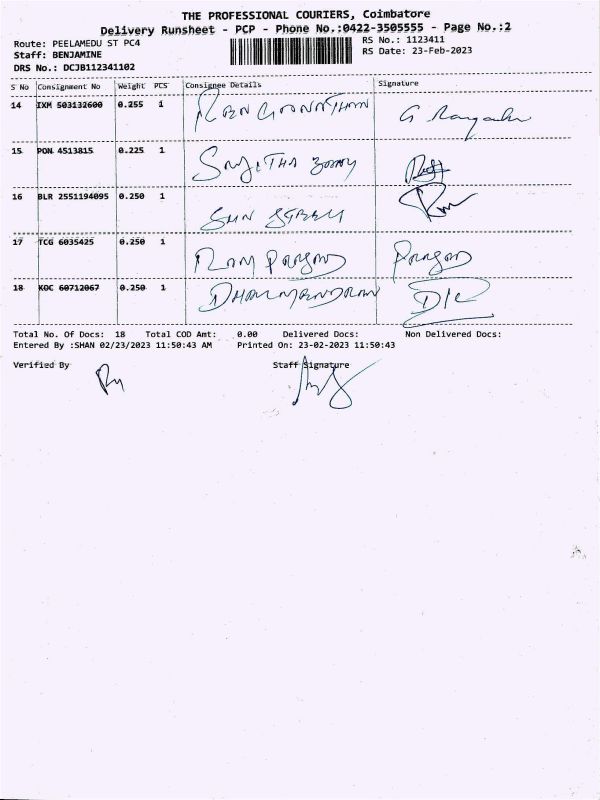 THE PROFESSIONAL COURIERS, Coimbatore
Delivery Runsheet - PCP - Phone No.:0422-3505555 - Page No.:2
Route: PEELAMEDU ST PC4
Staff: BENJAMINE
DRS No.: DCJB112341102
RS No.: 1123411
RS Date: 23-Feb-2023
S No Consignment No Weight PCS Consignee Details Signature
14 IXM 503132600 0.255 1
15 PON 4513815 0.225 1
16 BLR 2551194095 0.250 1 SUN
17 TCG 6035425 0.250 1 RAM PRASAD PRASAD
18 KOC 60712067 0.250 1
Total No. Of Docs: 18 Total COD Amt: 0.00 Delivered Docs: Non Delivered Docs:
Entered By :SHAN 02/23/2023 11:50:43 AM Printed On: 23-02-2023 11:50:43
Verified By Staff Signature